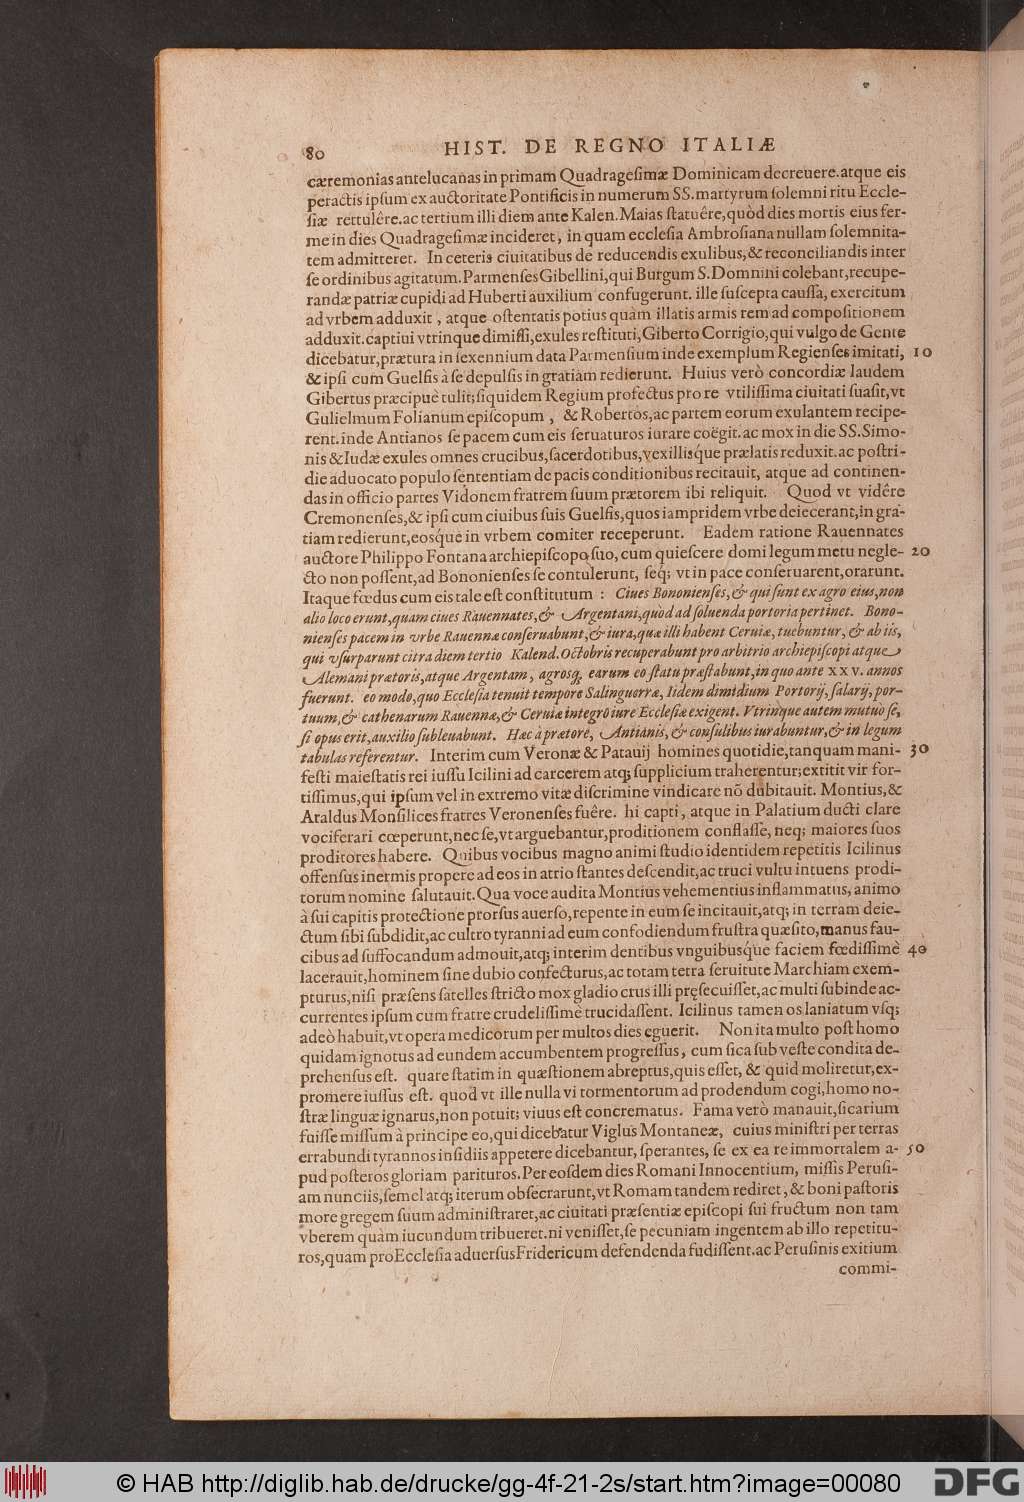 80 HIST. DE REGNO ITALIÆ
cæremonias antelucanas in primam Quadragesimæ Dominicam decreuere. atque eis
peractis ipsum ex auctoritate Pontificis in numerum SS. martyrum solemni ritu Eccle-
siæ rettulêre. ac tertium illi diem ante Kalen. Maias statuêre, quòd dies mortis eius fer-
me in dies Quadragesimæ incideret, in quam ecclesia Ambrosiana nullam solemnita-
tem admitteret. In ceteris ciuitatibus de reducendis exulibus, & reconciliandis inter
se ordinibus agitatum. Parmenses Gibellini, qui Burgum S. Domnini colebant, recupe-
randæ patriæ cupidi ad Huberti auxilium confugerunt. ille suscepta caussa, exercitum
ad vrbem adduxit, atque ostentatis potius quàm illatis armis rem ad compositionem
adduxit. captiui vtrinque dimissi, exules restituti, Giberto Corrigio, qui vulgo de Gente
dicebatur, prætura in sexennium data Parmensium inde exemplum Regienses imitati, 10
& ipsi cum Guelfis à se depulsis in gratiam redierunt. Huius verò concordiæ laudem
Gibertus præcipuè tulit; siquidem Regium profectus pro re vtilissima ciuitati suasit, vt
Gulielmum Folianum episcopum, & Robertos, ac partem eorum exulantem recipe-
rent. inde Antianos se pacem cum eis seruaturos iurare coëgit. ac mox in die SS. Simo-
nis & Iudæ exules omnes crucibus, sacerdotibus, vexillisq́ue prælatis reduxit. ac postri-
die aduocato populo sententiam de pacis conditionibus recitauit, atque ad continen-
das in officio partes Vidonem fratrem suum prætorem ibi reliquit. Quod vt vidêre
Cremonenses, & ipsi cum ciuibus suis Guelfis, quos iampridem vrbe deiecerant, in gra-
tiam redierunt, eosq́ue in vrbem comiter receperunt. Eadem ratione Rauennates
auctore Philippo Fontana archiepiscopo suo, cum quiescere domi legum metu negle- 20
cto non possent, ad Bononienses se contulerunt, seq; vt in pace conseruarent, orarunt.
Itaque fœdus cum eis tale est constitutum : Ciues Bononienses, & qui sunt ex agro eius, non
alio loco erunt, quam ciues Rauennates, & Argentani, quòd ad soluenda portoria pertinet. Bono-
nienses pacem in vrbe Rauennæ conseruabunt, & iura, quæ illi habent Ceruiæ, tuebuntur, & ab iis,
qui vsurparunt citra diem tertio Kalend. Octobris recuperabunt pro arbitrio archiepiscopi atque
Alemani prætoris, atque Argentam, agrosq́, earum eo statu præstabunt, in quo ante XXV. annos
fuerunt. eo modo, quo Ecclesia tenuit tempore Salinguerræ, Iidem dimidium Portorij, salarij, por-
tuum, & cathenarum Rauennæ, & Ceruiæ integrō iure Ecclesiæ exigent. Vtrinque autem mutuo se,
si opus erit, auxilio subleuabunt. Hæc à prætore, Antianis, & consulibus iurabuntur, & in legum
tabulas referentur. Interim cum Veronæ & Patauij homines quotidie, tanquam mani- 30
festi maiestatis rei iussu Icilini ad carcerem atq; supplicium traherentur; extitit vir for-
tissimus, qui ipsum vel in extremo vitæ discrimine vindicare nō dubitauit. Montius, &
Araldus Monsilices fratres Veronenses fuêre. hi capti, atque in Palatium ducti clare
vociferari cœperunt, nec se, vt arguebantur, proditionem conflasse, neq; maiores suos
proditores habere. Quibus vocibus magno animi studio identidem repetitis Icilinus
offensus inermis propere ad eos in atrio stantes descendit, ac truci vultu intuens prodi-
torum nomine salutauit. Qua voce audita Montius vehementius inflammatus, animo
à sui capitis protectione prorsus auerso, repente in eum se incitauit, atq; in terram deie-
ctum sibi subdidit, ac cultro tyranni ad eum confodiendum frustra quæsito, manus fau-
cibus ad suffocandum admouit, atq; interim dentibus vnguibusq́ue faciem fœdissimè 40
lacerauit, hominem sine dubio confecturus, ac totam tetra seruitute Marchiam exem-
pturus, nisi præsens satelles stricto mox gladio crus illi pręsecuisset, ac multi subinde ac-
currentes ipsum cum fratre crudelissimè trucidassent. Icilinus tamen os laniatum vsq;
adeò habuit, vt opera medicorum per multos dies eguerit. Non ita multo post homo
quidam ignotus ad eundem accumbentem progressus, cum sica sub veste condita de-
prehensus est. quare statim in quæstionem abreptus, quis esset, & quid moliretur, ex-
promere iussus est. quod vt ille nulla vi tormentorum ad prodendum cogi, homo no-
stræ linguæ ignarus, non potuit; viuus est concrematus. Fama verò manauit, sicarium
fuisse missum à principe eo, qui dicebatur Viglus Montaneæ, cuius ministri per terras
errabundi tyrannos insidiis appetere dicebantur, sperantes, se ex ea re immortalem a- 50
pud posteros gloriam parituros. Per eosdem dies Romani Innocentium, missis Perusi-
am nunciis, semel atq; iterum obsecrarunt, vt Romam tandem rediret, & boni pastoris
more gregem suum administraret, ac ciuitati præsentiæ episcopi sui fructum non tam
vberem quàm iucundum tribueret. ni venisset, se pecuniam ingentem ab illo repetitu-
ros, quam pro Ecclesia aduersus Fridericum defendenda fudissent. ac Perusinis exitium
commi-
© HAB http://diglib.hab.de/drucke/gg-4f-21-2s/start.htm?image=00080 DFG